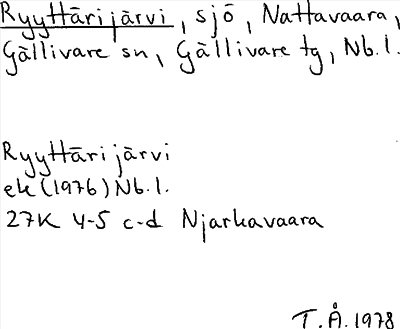 Ryyttärijärvi, sjö, Nattavaara,
Gällivare sn, Gällivare tg, Nb.l.
Ryyttärijärvi
ek (1976) Nb.l.
27K 4-5 c-d Njarkavaara
T.Å. 1978